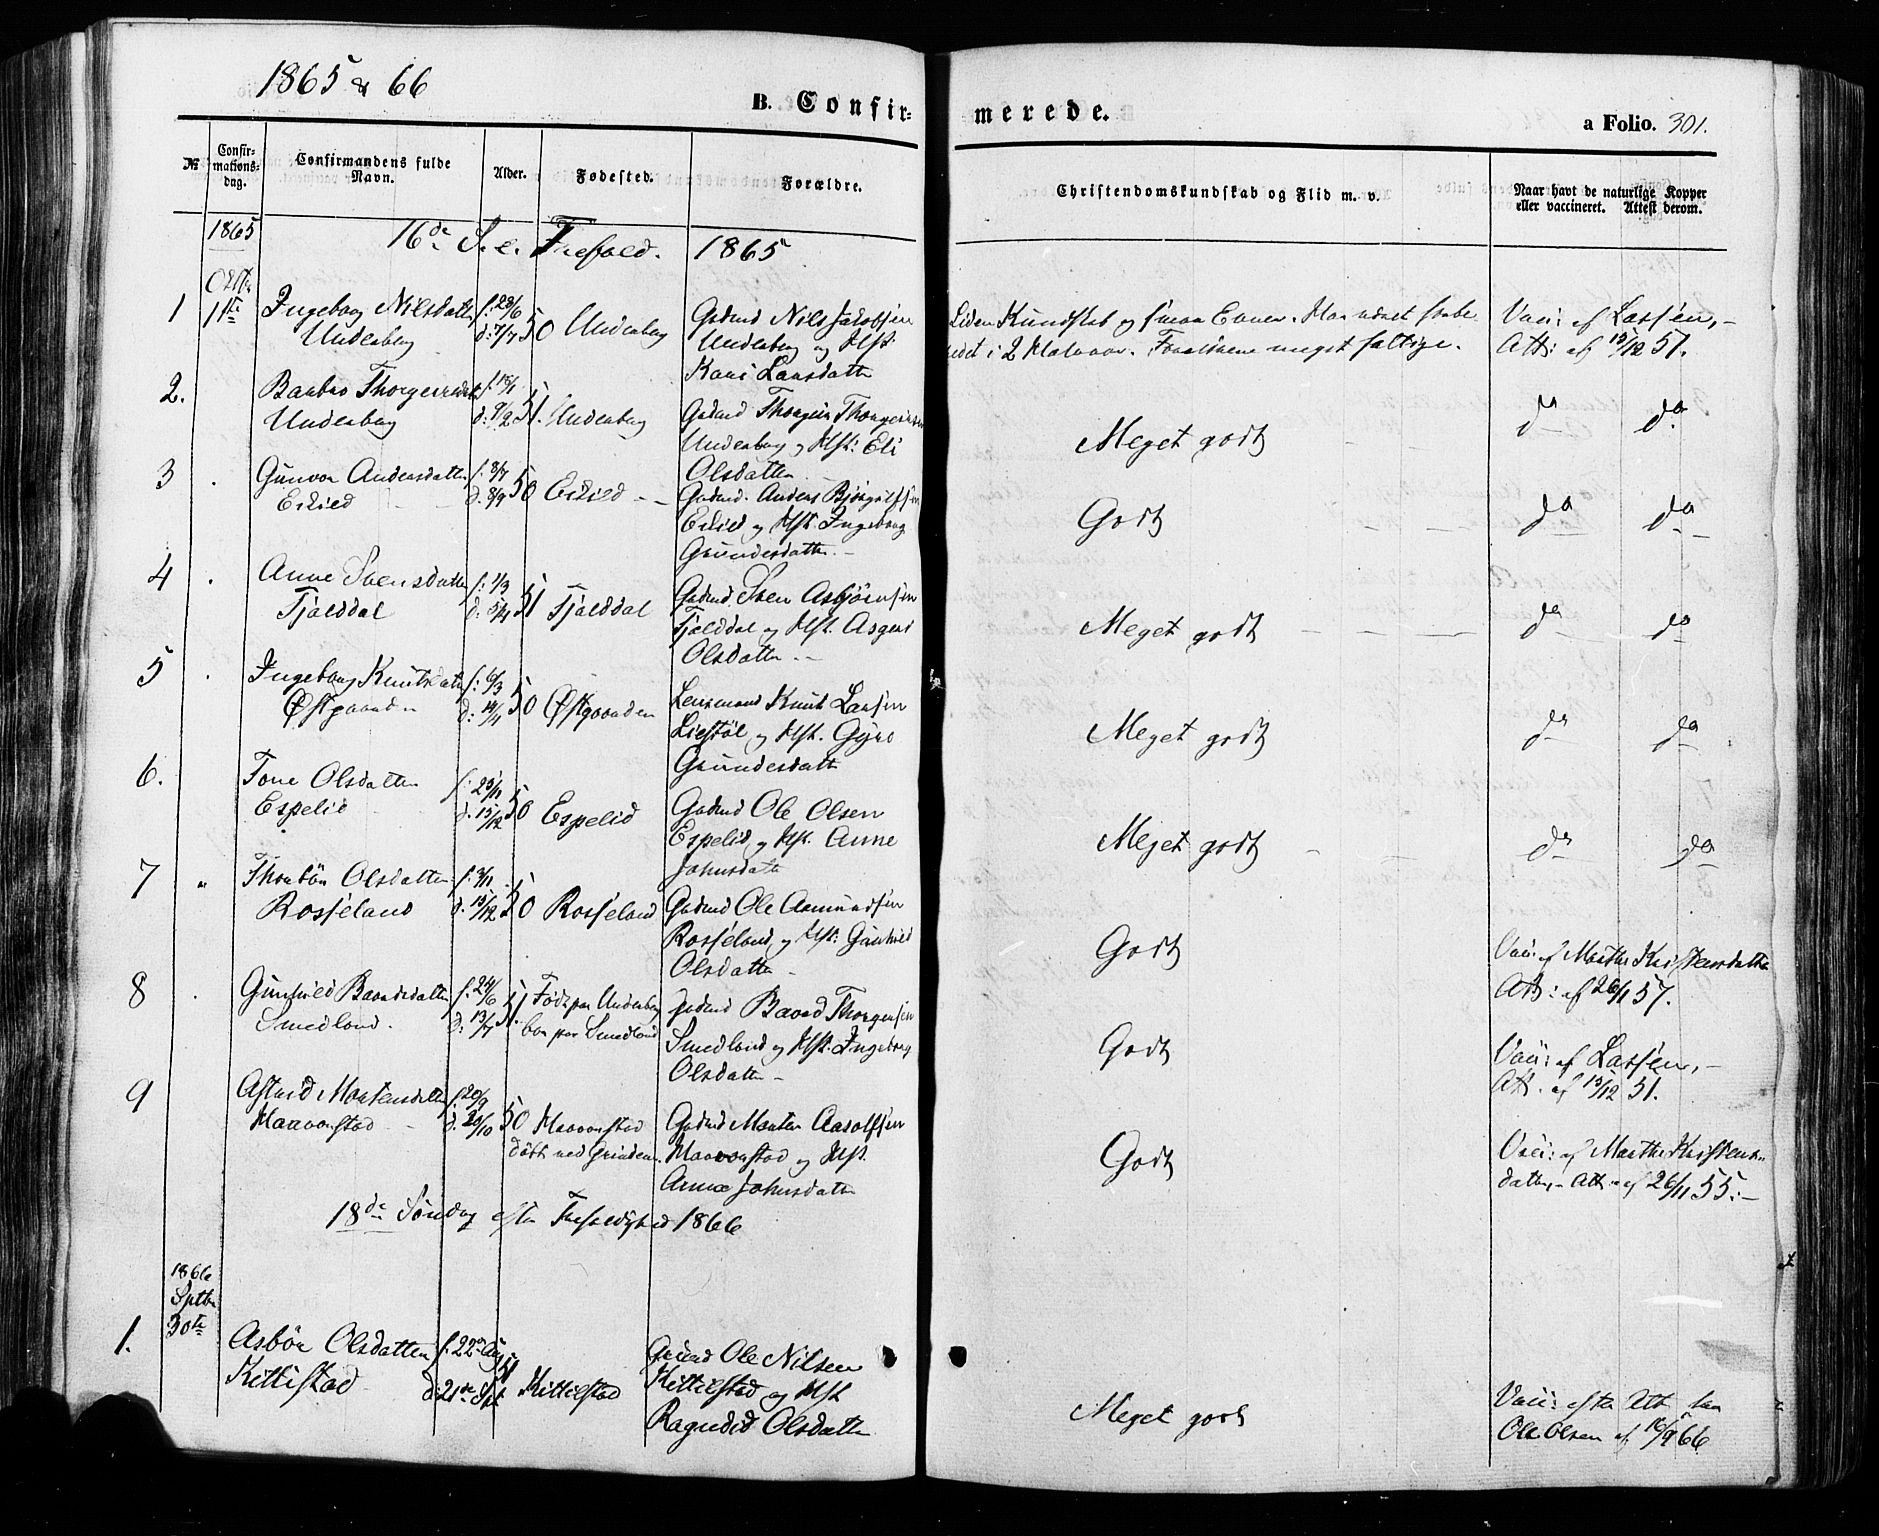 1865 & 66
B. Confir-
merede.
a Folio. 301.
№
Confir-
mations-
dag.
Confirmandens fulde
Navn.
Alder.
Fødested.
Forældre.
Christendomskundskab og Flid m. v.
Naar havt de naturlige Kopper
eller vaccineret. Attest derom.
1865
16de S. e. Trefold. 1865
Octbr
1te
1
Ingeborg Nilsdatter
Underberg
f: 28/6
d: 7/7 50
Underberg
Gaardmd Nils Jacobsen
Underberg og Hst:
Kari Larsdatter
Liden Kundskab og smaa Evner. Har været
i 2 Halvaar. Forældrene meget fattige.
Vaci: af Lassen, –
Att: af 13/12 51.
2.
Barbro Thorgersdatter
Underberg
f. 18/1
d: 9/2 51.
Underberg
Gaardmd Thorgeir Thorgersen
Underberg og Hst: Eli
Olsdatter
Meget godt
do do
3
Gunvor Andersdatter
Eslied
f. 8/7
d. 8/9 50
Eslied
Gaardmd. Anders Bjørgulfsen
Eslied og Hst. Ingeborg
Grundesdatter. –
Godt
do do
4
Anne Svensdatter
Tjalddal
f: 1/3
d: 5/4 51
Tjalddal
Gaardmd Sven Asbjørnsen
Tjalddal og Hst. Asgerd
Olsdatter –
Meget godt
do do
5
Ingeborg Knutsdatter
Østgaarden
f: 6/3
d: 14/11 50
Østgaarden
Lensmand Knut Larsen
Liestøl og Hst. Gyro
Grundesdatter
Meget godt
do do
6.
Tone Olsdatter
Espelid
f: 23/11
d. 15/12 50
Espelid
Gaardmd Ole Olsen
Espelid og Hst. Anne
Johnsdatter
Meget godt
do do
7
Thorbør Olsdatter
Rosseland
f. 3/11
d. 15/12 50
Rosseland
Gaardmd Ole Asmundsen
Rosseland og Hst: Gunhild
Olsdatter –
Godt
Vaci: af Marthe Kristensdatter
Att: af 26/1 57.
8
Gunhild Baardsdatter
Smedland.
f. 24/6
d: 13/7 51.
Født paa Underberg
bor paa Smedland
Gaardmd Baard Thorgersen
Smedland og Hst. Ingeborg
Olsdatter –
Godt
Vaci: af Lassen, –
Att. af 13/12 51.
9
Astrid Mortensdatter
Haavorstad
f. 20/9
d. 20/10 50
Haavorstad
døbt ved Grinden.
Gaardmd Morten Aasolfsen
Haavorstad og Hst.
Anne Johnsdatter
Godt
Vaci: af Marthe Kristens-
datter, – Att: af 26/11 55: –
18de Søndag efter Trefoldighed 1866
1866
Sptbr
30te
1.
Asbør Olsdatter
Kittilstad
f. 22de Aug
d. 21de Spt 51
Kittilstad
Ole Nilsen
Kittilstad og Hst
Ragndid Olsdatter
Meget godt
Vaci: efter Att fra
Ole Olsen af 16/9 66